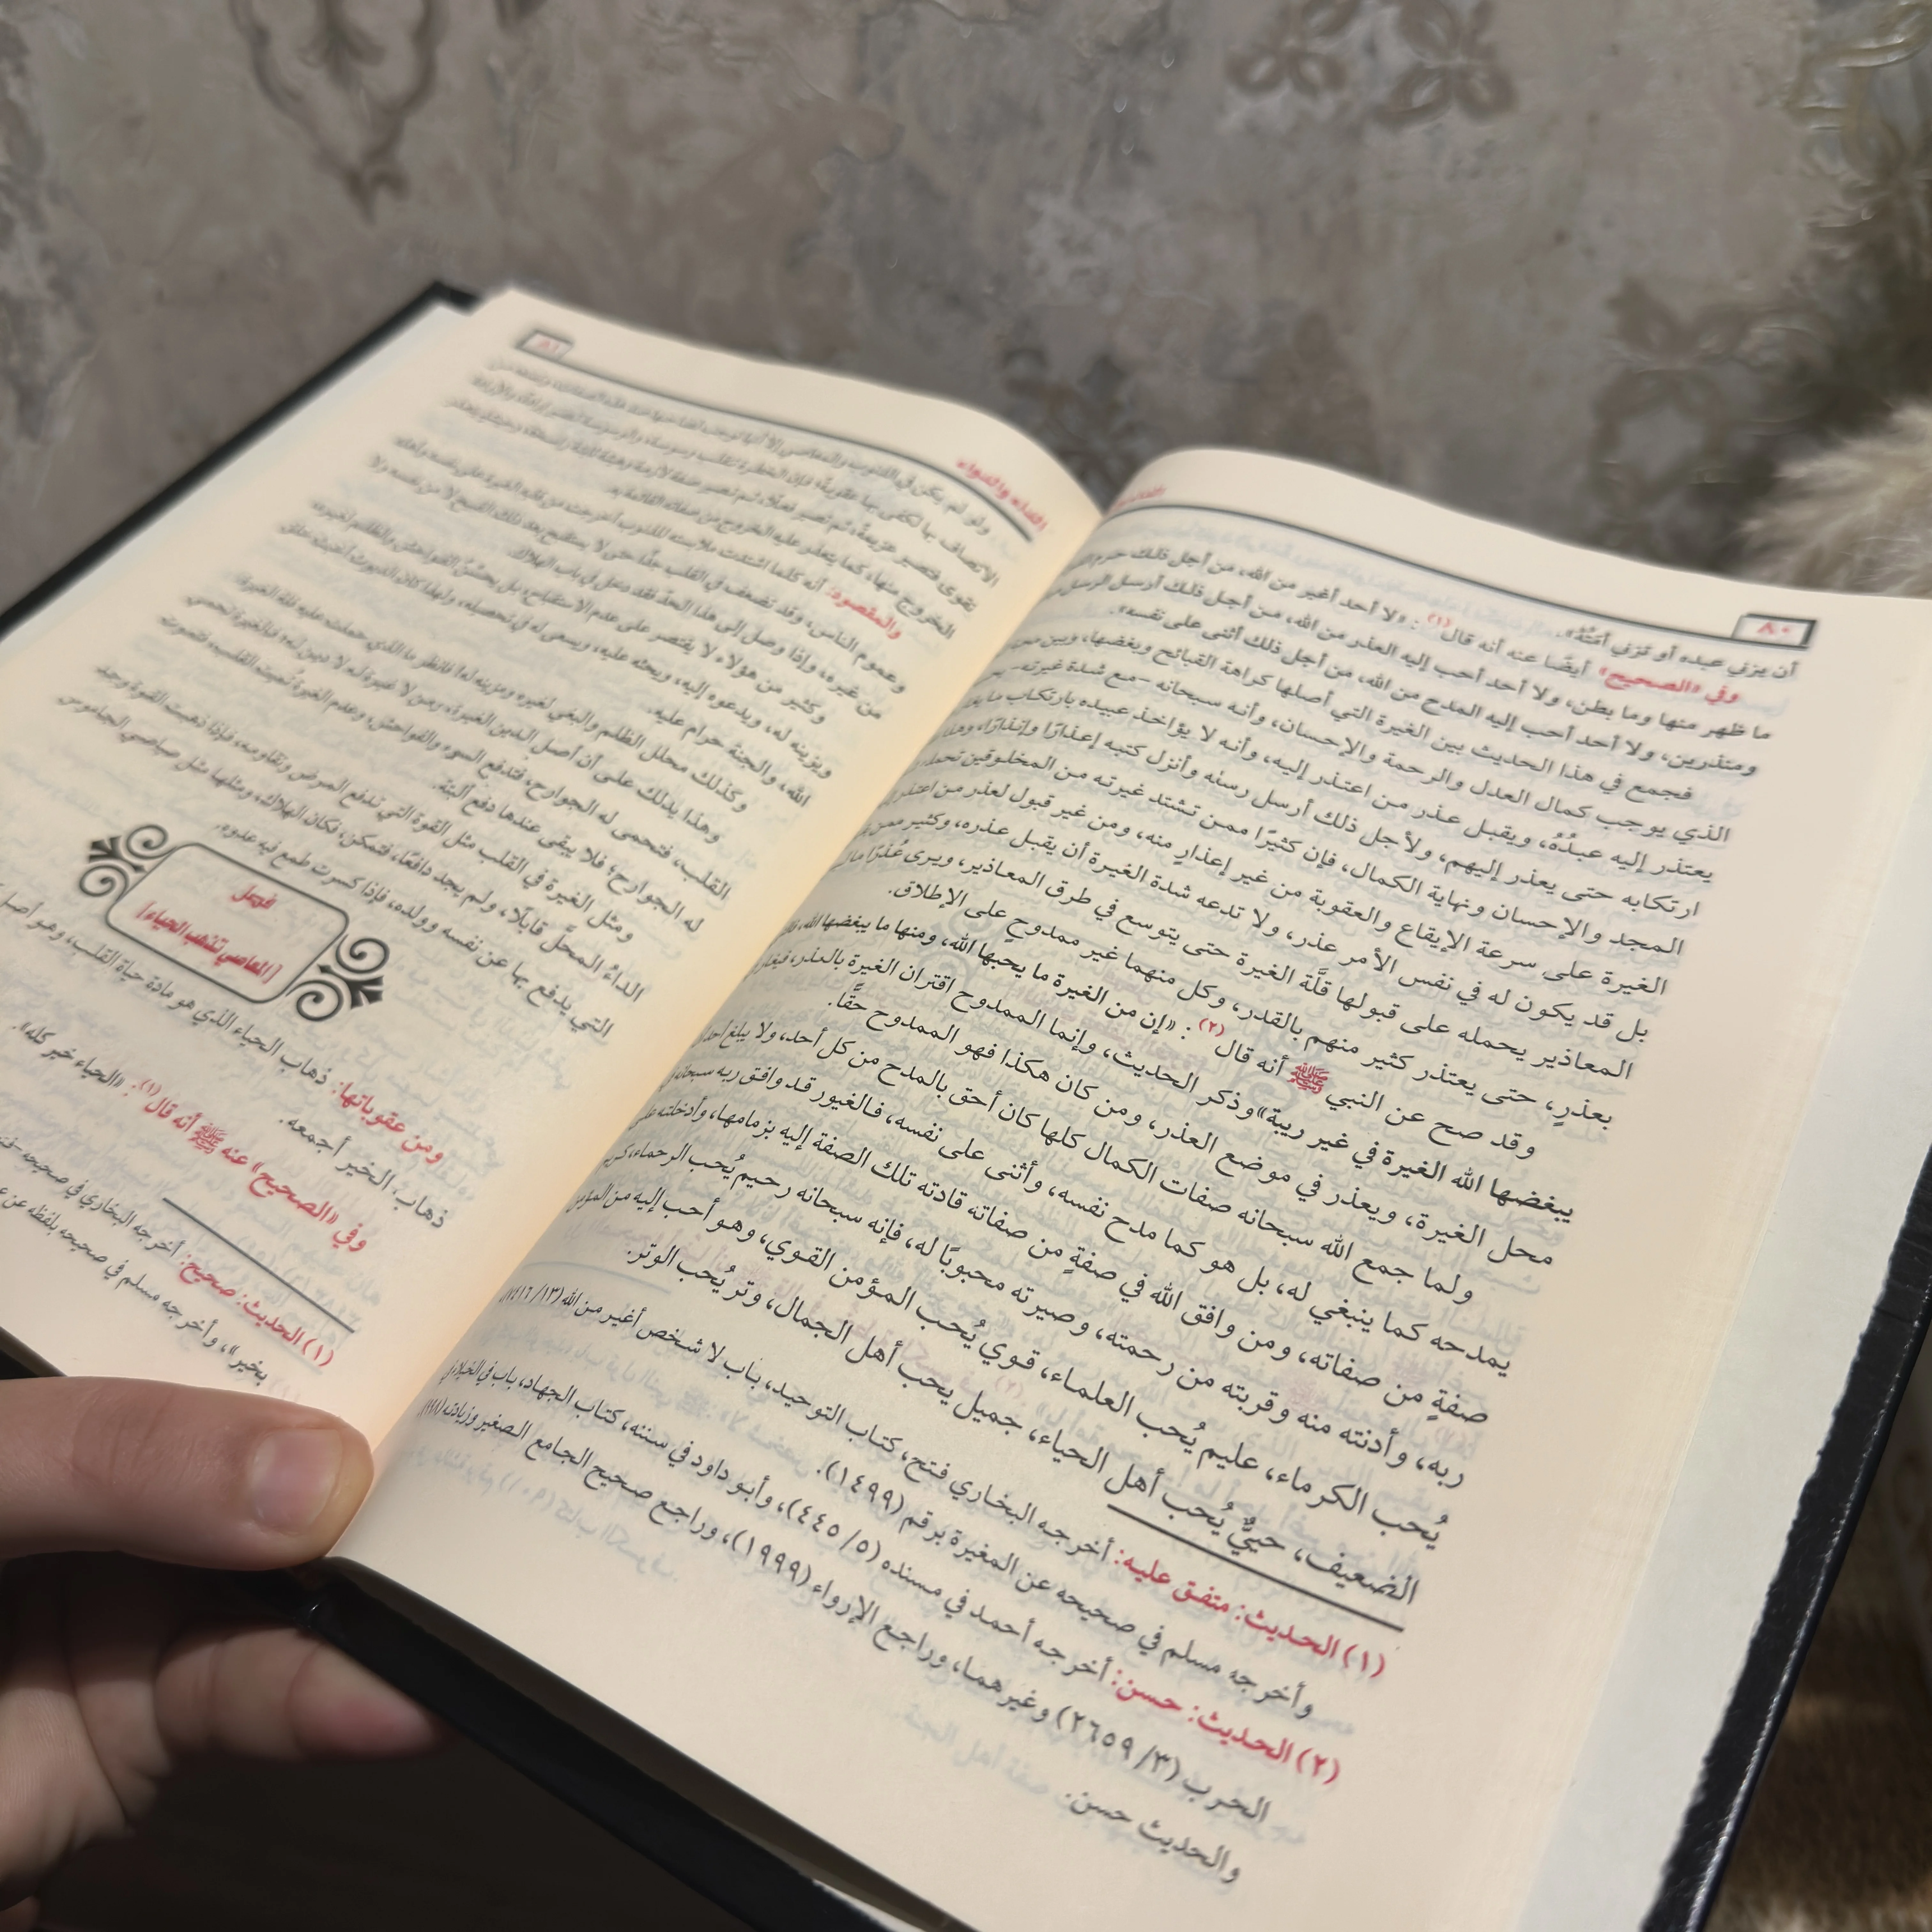 ٨٠
أن يزني عبده أو تزني أمَتُهُ».
وفي «الصحيح» أيضًا عنه أنه قال(١): «لا أحد أغير من الله، من أجل ذلك حرم
ما ظهر منها وما بطن، ولا أحد أحب إليه العذر من الله، من أجل ذلك أرسل الرسل
ومنذرين، ولا أحد أحب إليه المدح من الله، من أجل ذلك أثنى على نفسه».
فجمع في هذا الحديث بين الغيرة التي أصلها كراهة القبائح وبغضها، وبين
الذي يوجب كمال العدل والرحمة والإحسان، وأنه سبحانه -مع شدة غيرته-
يعتذر إليه عبدُهُ، ويقبل عذر من اعتذر إليه، وأنه لا يؤاخذ عبيده بارتكاب ما
ارتكابه حتى يعذر إليهم، ولأجل ذلك أرسل رسله وأنزل كتبه إعذارًا وإنذارًا، وهذا
المجد والإحسان ونهاية الكمال، فإن كثيرًا ممن تشتد غيرته من المخلوقين تحمله
الغيرة على سرعة الإيقاع والعقوبة من غير إعذارٍ منه، ومن غير قبول لعذر من اعتذر
بل قد يكون له في نفس الأمر عذر، ولا تدعه شدة الغيرة أن يقبل عذره، وكثير ممن
المعاذير يحمله على قبولها قلَّة الغيرة حتى يتوسع في طرق المعاذير، ويرى عُذرًا ما
بعذرٍ، حتى يعتذر كثير منهم بالقدر، وكل منهما غير ممدوحٍ على الإطلاق.
وقد صح عن النبي ﷺ أنه قال(٢): «إن من الغيرة ما يحبها الله، ومنها ما يبغضها الله،
يبغضها الله الغيرة في غير ريبة» وذكر الحديث، وإنما الممدوح اقتران الغيرة بالعذر، فيغار
محل الغيرة، ويعذر في موضع العذر، ومن كان هكذا فهو الممدوح حقًّا.
ولما جمع الله سبحانه صفات الكمال كلها كان أحق بالمدح من كل أحد، ولا يبلغ أحد
يمدحه كما ينبغي له، بل هو كما مدح نفسه، وأثنى على نفسه، فالغيور قد وافق ربه سبحانه
صفةٍ من صفاته، ومن وافق الله في صفةٍ من صفاته قادته تلك الصفة إليه بزمامها، وأدخلته على
ربه، وأدنته منه وقربته من رحمته، وصيرته محبوبًا له، فإنه سبحانه رحيم يُحب الرحماء، كريم
يُحب الكرماء، عليم يُحب العلماء، قوي يُحب المؤمن القوي، وهو أحب إليه من المؤمن
الضعيف، حييٌّ يُحب أهل الحياء، جميل يحب أهل الجمال، وتر يُحب الوتر.
(١) الحديث: متفق عليه: أخرجه البخاري فتح، كتاب التوحيد، باب لا شخص أغير من الله (١٣/ ٧٤١٦)
وأخرجه مسلم في صحيحه عن المغيرة برقم (١٤٩٩).
(٢) الحديث: حسن: أخرجه أحمد في مسنده (٥/ ٤٤٥)، وأبو داود في سننه، كتاب الجهاد، باب في الخيلاء في
الحرب (٣/ ٢٦٥٩) وغيرهما، وراجع الإرواء (١٩٩٩)، وراجع صحيح الجامع الصغير وزيادته
والحديث حسن.
الداء والدواء
٨١
ولو لم يكن في الذنوب والمعاصي إلا أنها توجب لصاحبها
الاتصاف بها لكفى بها عقوبةً، فإن الخطرة تنقلب وسوسة، والوسوسة تصير إرادة، والإرادة
تقوى فتصير عزيمةً، ثم تصير فعلًا، ثم تصير صفة لازمة وهيئة ثابتة راسخة، وحينئذ يتعذر
الخروج منها، كما يتعذر عليه الخروج من صفاته القائمة به.
والمقصود: أنه كلما اشتدت ملابسته للذنوب أخرجت من قلبه الغيرة على نفسه وأهله
وعموم الناس، وقد تضعف في القلب جدًّا حتى لا يستقبح بعد ذلك القبيح لا من نفسه ولا
من غيره، وإذا وصل إلى هذا الحد فقد دخل في باب الهلاك.
وكثير من هؤلاء لا يقتصر على عدم الاستقباح، بل يحسِّنُ الفواحش والظلم لغيره،
ويزينه له، ويدعوه إليه، ويحثه عليه، ويسعى له في تحصيله، ولهذا كان الديوث أخبث خلق
الله، والجنة حرام عليه.
وكذلك محلل الظلم والبغي لغيره ومزينه له، فانظر ما الذي حملت عليه قلة الغيرة.
وهذا يدلك على أن أصل الدين الغيرة، ومن لا غيرة له لا دين له؛ فالغيرة تحمي
القلب، فتحمى له الجوارح، فتدفع السوء والفواحش، وعدم الغيرة تُميت القلب، فتموت
له الجوارح، فلا يبقى عندها دفع ألبتة.
ومثل الغيرة في القلب مثل القوة التي تدفع المرض وتقاومه، فإذا ذهبت القوة وجد
الداءُ المحلَّ قابلًا، ولم يجد دافعًا، فتمكن، فكان الهلاك، ومثلها مثل صياصي الجاموس
التي يدفع بها عن نفسه وولده، فإذا كسرت طمع فيه عدوه.
فصل
[المعاصي تذهب الحياء]
ومن عقوباتها: ذهاب الحياء الذي هو مادة حياة القلب، وهو أصل
ذهاب الخير أجمعه.
وفي «الصحيح» عنه ﷺ أنه قال(١): «الحياء خير كله».
(١) الحديث: صحيح: أخرجه البخاري في صحيحه
بخير»، وأخرجه مسلم في صحيحه بلفظه عن